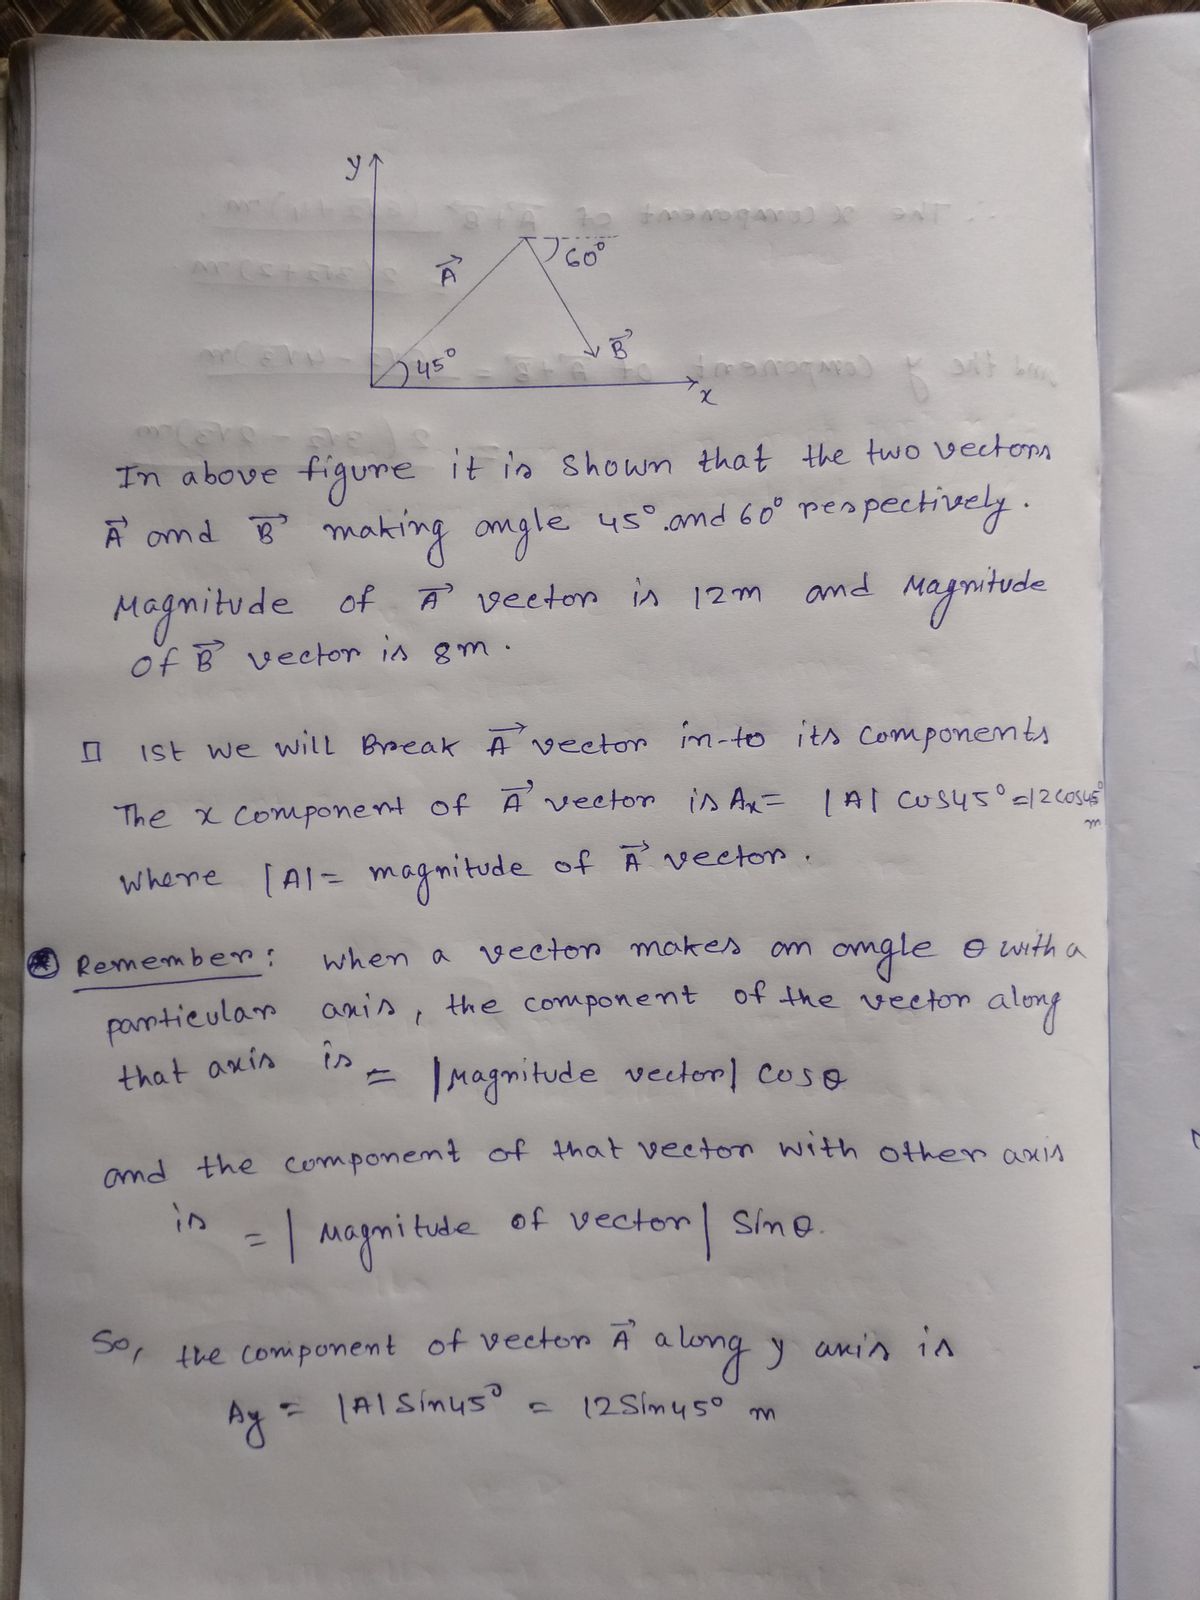 y
A⃗
60°
B⃗
45°
x
In above figure it is shown that the two vectors
A⃗ and B⃗ making angle 45° and 60° respectively.
Magnitude of A⃗ vector is 12m and Magnitude
of B⃗ vector is 8m.
1st we will Break A⃗ vector in-to its components
The x component of A⃗ vector is Ax = |A| cos45° = 12cos45° m
where |A| = magnitude of A⃗ vector.
Remember: when a vector makes an angle θ with a
particular axis, the component of the vector along
that axis is = |Magnitude vector| cosθ
and the component of that vector with other axis
is = | Magnitude of vector | Sinθ.
So, the component of vector A⃗ along y axis is
Ay = |A| Sin45° = 12Sin45° m